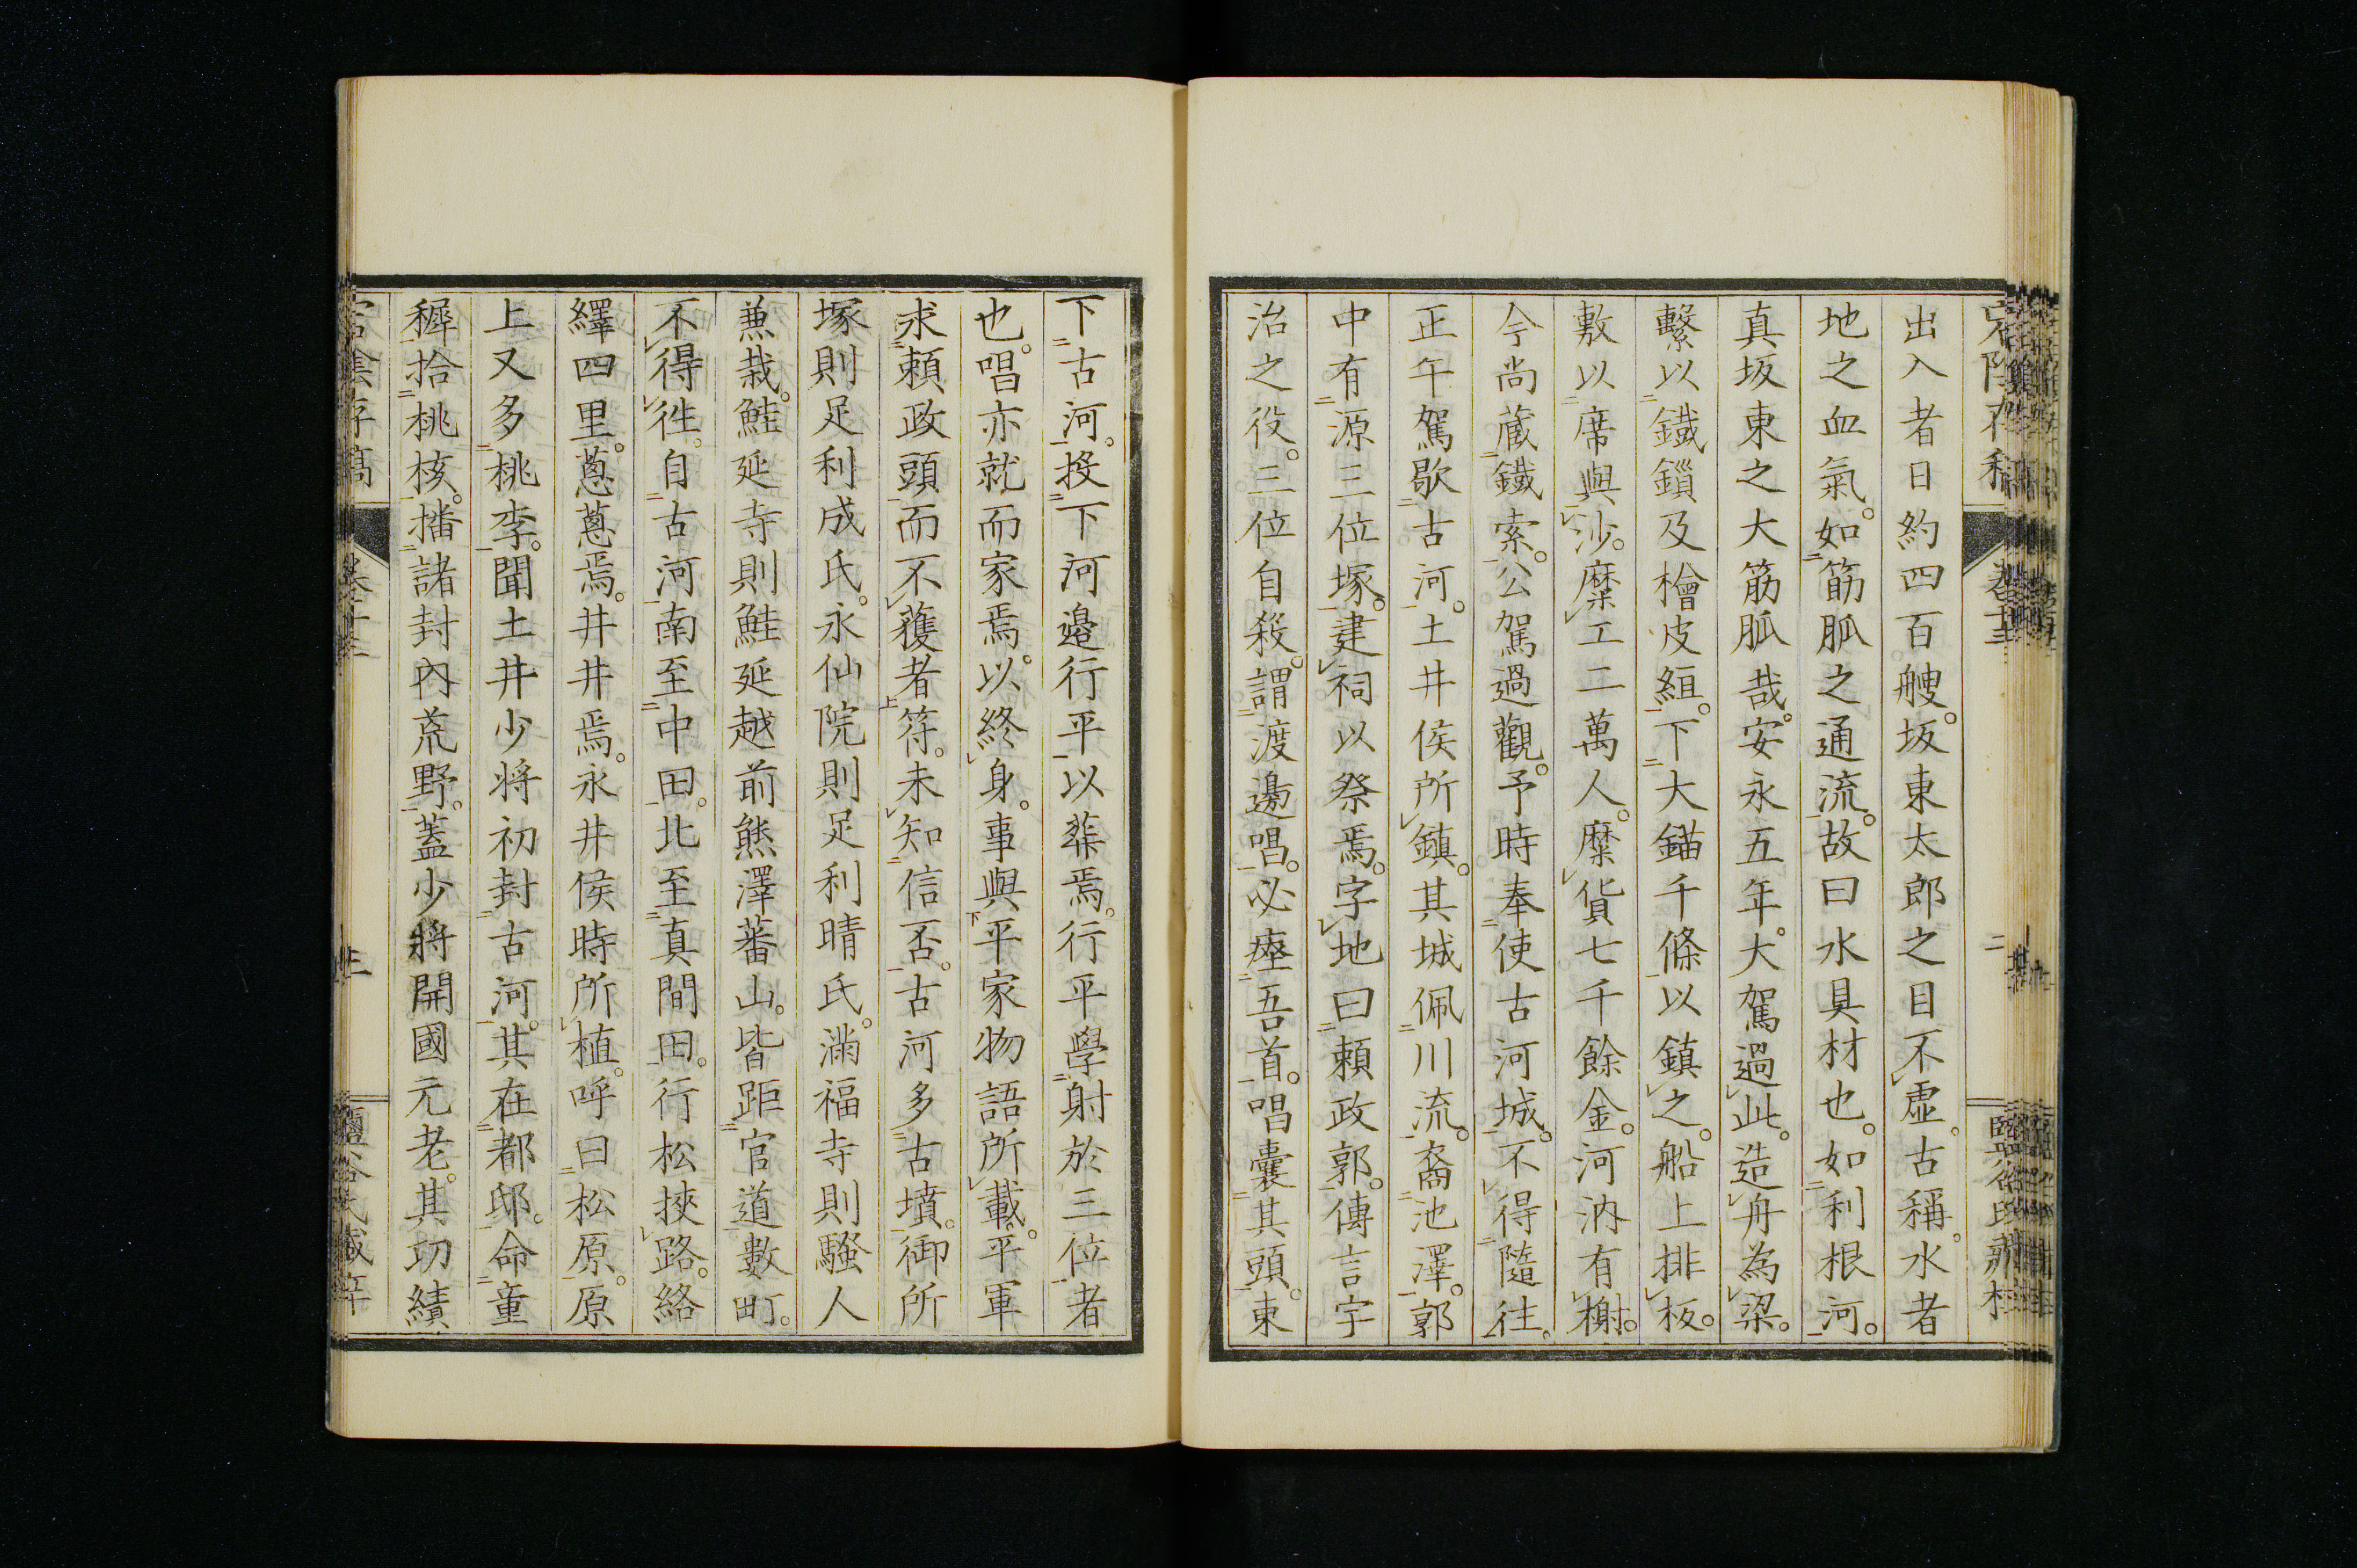 出入者日約四百艘。坂東太郎之目不虛。古稱。水者
地之血氣。如筋脈之通流。故曰水具材也。如利根河。
真坂東之大筋脈哉。安永五年。大駕過此。造舟為梁。
繫以鐵鎖及檜皮絙。下大錨千條以鎮之。船上排板。
敷以席與沙。糜工二萬人。糜貨七千餘金。河汭有榭。
今尚藏鐵索。公駕過觀。予時奉使古河城。不得隨往。
正午駕歇古河。土井侯所鎮。其城佩川流。裔池澤。郭
中有源三位塚。建祠以祭焉。字地曰賴政郭。傳言宇
治之役。三位自殺。謂渡邊唱。必瘞吾首。唱囊其頭。東
下古河。投下河邊行平以葬焉。行平學射於三位者
也。唱亦就而家焉。以終身。事與平家物語所載。平軍
求賴政頭而不獲者符。未知信否。古河多古墳。御所
塚則足利成氏。永仙院則足利晴氏。滿福寺則騷人
兼栽。鮭延寺則鮭延越前熊澤蕃山。皆距官道數町。
不得往。自古河南至中田。北至真間田。行松挾路。絡
繹四里。蔥蔥焉。井井焉。永井侯時所植。呼曰松原。原
上又多桃李。聞土井少將初封古河。其在都邸。命童
穉拾桃核。播諸封內荒野。蓋少將開國元老。其功績